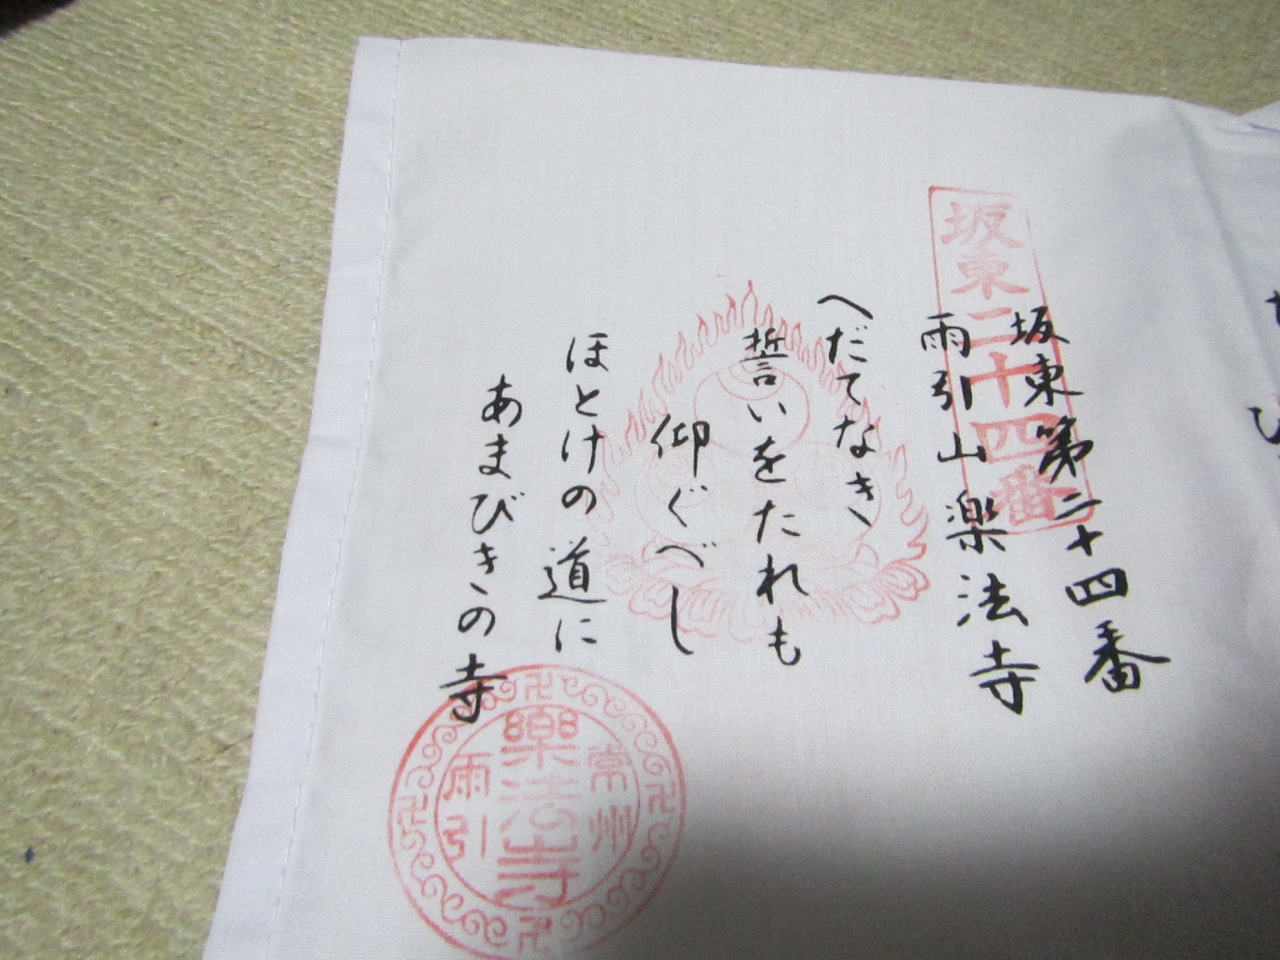 坂東二十四番
坂東第二十四番
雨引山楽法寺
へだてなき
誓いをたれも
仰ぐべし
ほとけの道に
あまびきの寺
常州
樂法寺
雨引